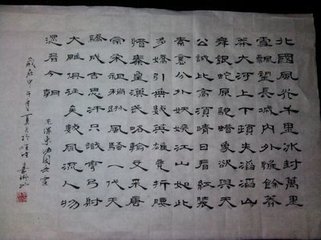 北國風光千里冰封萬里
雪飄望長城內外惟餘莽
莽大河上下頓失滔滔山
舞銀蛇原馳蠟象欲與天
公試比高須晴日看紅裝
素裹分外妖嬈江山如此
多嬌引無數英雄競折腰
惜秦皇漢武略輸文采唐
宗宋祖稍遜風騷一代天
驕成吉思汗只識彎弓射
大雕俱往矣數風流人物
還看今朝
毛澤東沁園春雪
歲在甲午年夏